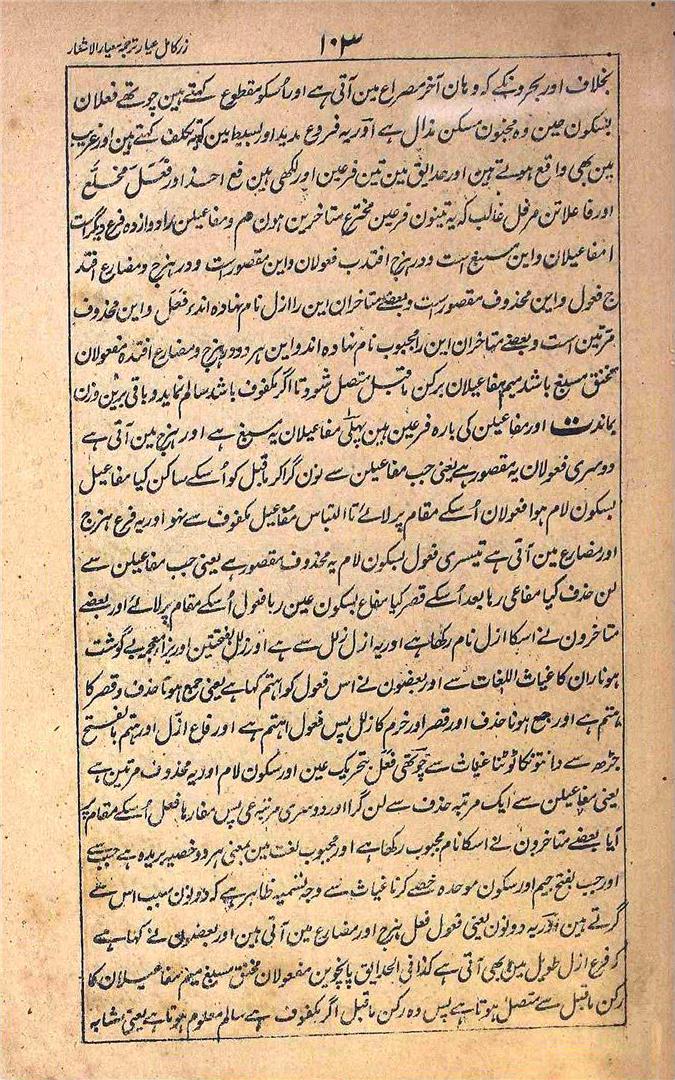 ۱۰۳
زر کامل عیار ترجمہ معیار الاشعار
بخلاف اور بحرونکے کہ وہان آخر مصراع مین آتی ہے اور اُسکو مقطوع کہتے ہین چوتھے فعلان
بسکون عین وہ مخبون مسکن مذال ہے اور یہ فروع مدید اور بسیط مین بتکلف کہتے ہین اور غریب
مین بھی واقع ہوتے ہین اور حدایق مین تین فرعین اور لکھی ہین فع احذ اور فعل مخلع
اور فاعلاتن مرفل غالب کہ یہ تینون فرعین مخترع متاخرین ہون هم و مفاعیلن را دوازده فرع دیگر است
ا مفاعیلان و این مسبغ است و در هزج افتد ب فعولان و این مقصور است و در هزج و مضارع افتد
ج فعول و این محذوف مقصور است و بعضے متاخران این را ازل نام نهاده اند د فعل و این محذوف
مرتین است و بعضے متاخران این را مجبوب نام نهاده اند و این هر دو در هزج و مضارع افتد ه مفعولان
مخنق مسبغ باشد میم مفاعیلان برکن ماقبل متصل شود تا اگر مکفوف باشد سالم نماید و باقی برین وزن
بماند ت اور مفاعیلن کی بارہ فرعین ہین پہلی مفاعیلان یہ مسبغ ہے اور ہزج مین آتی ہے
دوسری فعولان یہ مقصور ہے یعنی جب مفاعیلن سے نون گرا کر ماقبل کو اُسکے ساکن کیا مفاعیل
بسکون لام ہوا فعولان اُسکے مقام پر لائے تا التباس مفاعیل مکفوف سے نہو اور یہ فرع ہزج
اور مضارع مین آتی ہے تیسری فعول بسکون لام یہ محذوف مقصور ہے یعنی جب مفاعیلن سے
لن حذف کیا مفاعی رہا بعد اُسکے قصر کیا مفاع بسکون عین رہا فعول اُسکے مقام پر لائے اور بعضے
متاخرون نے اسکا ازل نام رکھا ہے اور یہ ازل زلل سے ہے اور زلل بفتحتین اور بزاء معجمہ بے گوشت
ہونا ران کا غیاث اللغات سے اور بعضون نے اس فعول کو اہتم کہا ہے یعنی جمع ہونا حذف و قصر کا
ہتم ہے اور جمع ہونا حذف اور قصر اور خرم کا زلل پس فعول اہتم ہے اور فاع ازل اور ہتم بالفتح
جڑھ سے دانتونکا ٹوٹنا غیاث سے چوتھی فعل بتحریک عین اور سکون لام اور یہ محذوف مرتین ہے
یعنی مفاعیلن سے ایک مرتبہ حذف سے لن گرا اور دوسری مرتبہ عی پس مفا رہا فعل اُسکے مقام پر
آیا بعضے متاخرون نے اسکا نام مجبوب رکھا ہے اور مجبوب لغت مین بمعنی ہر دو خصیہ بریدہ ہے جب سے
اور جب بفتح جیم اور سکون موحدہ خصے کرنا غیاث سے وجہ تسمیہ ظاہر ہے کہ دونون سبب اس سے
گرتے ہین اور یہ دونون یعنی فعول فعل ہزج اور مضارع مین آتی ہین اور بعضون نے کہا ہے
کہ فرع ازل طویل مین بھی آتی ہے کذا فی الحدایق پانچوین مفعولان مخنق مسبغ میم مفاعیلان کا
رکن ماقبل سے متصل ہوتا ہے پس وہ رکن ماقبل اگر مکفوف ہے سالم معلوم ہوتا ہے یعنی مشابہ